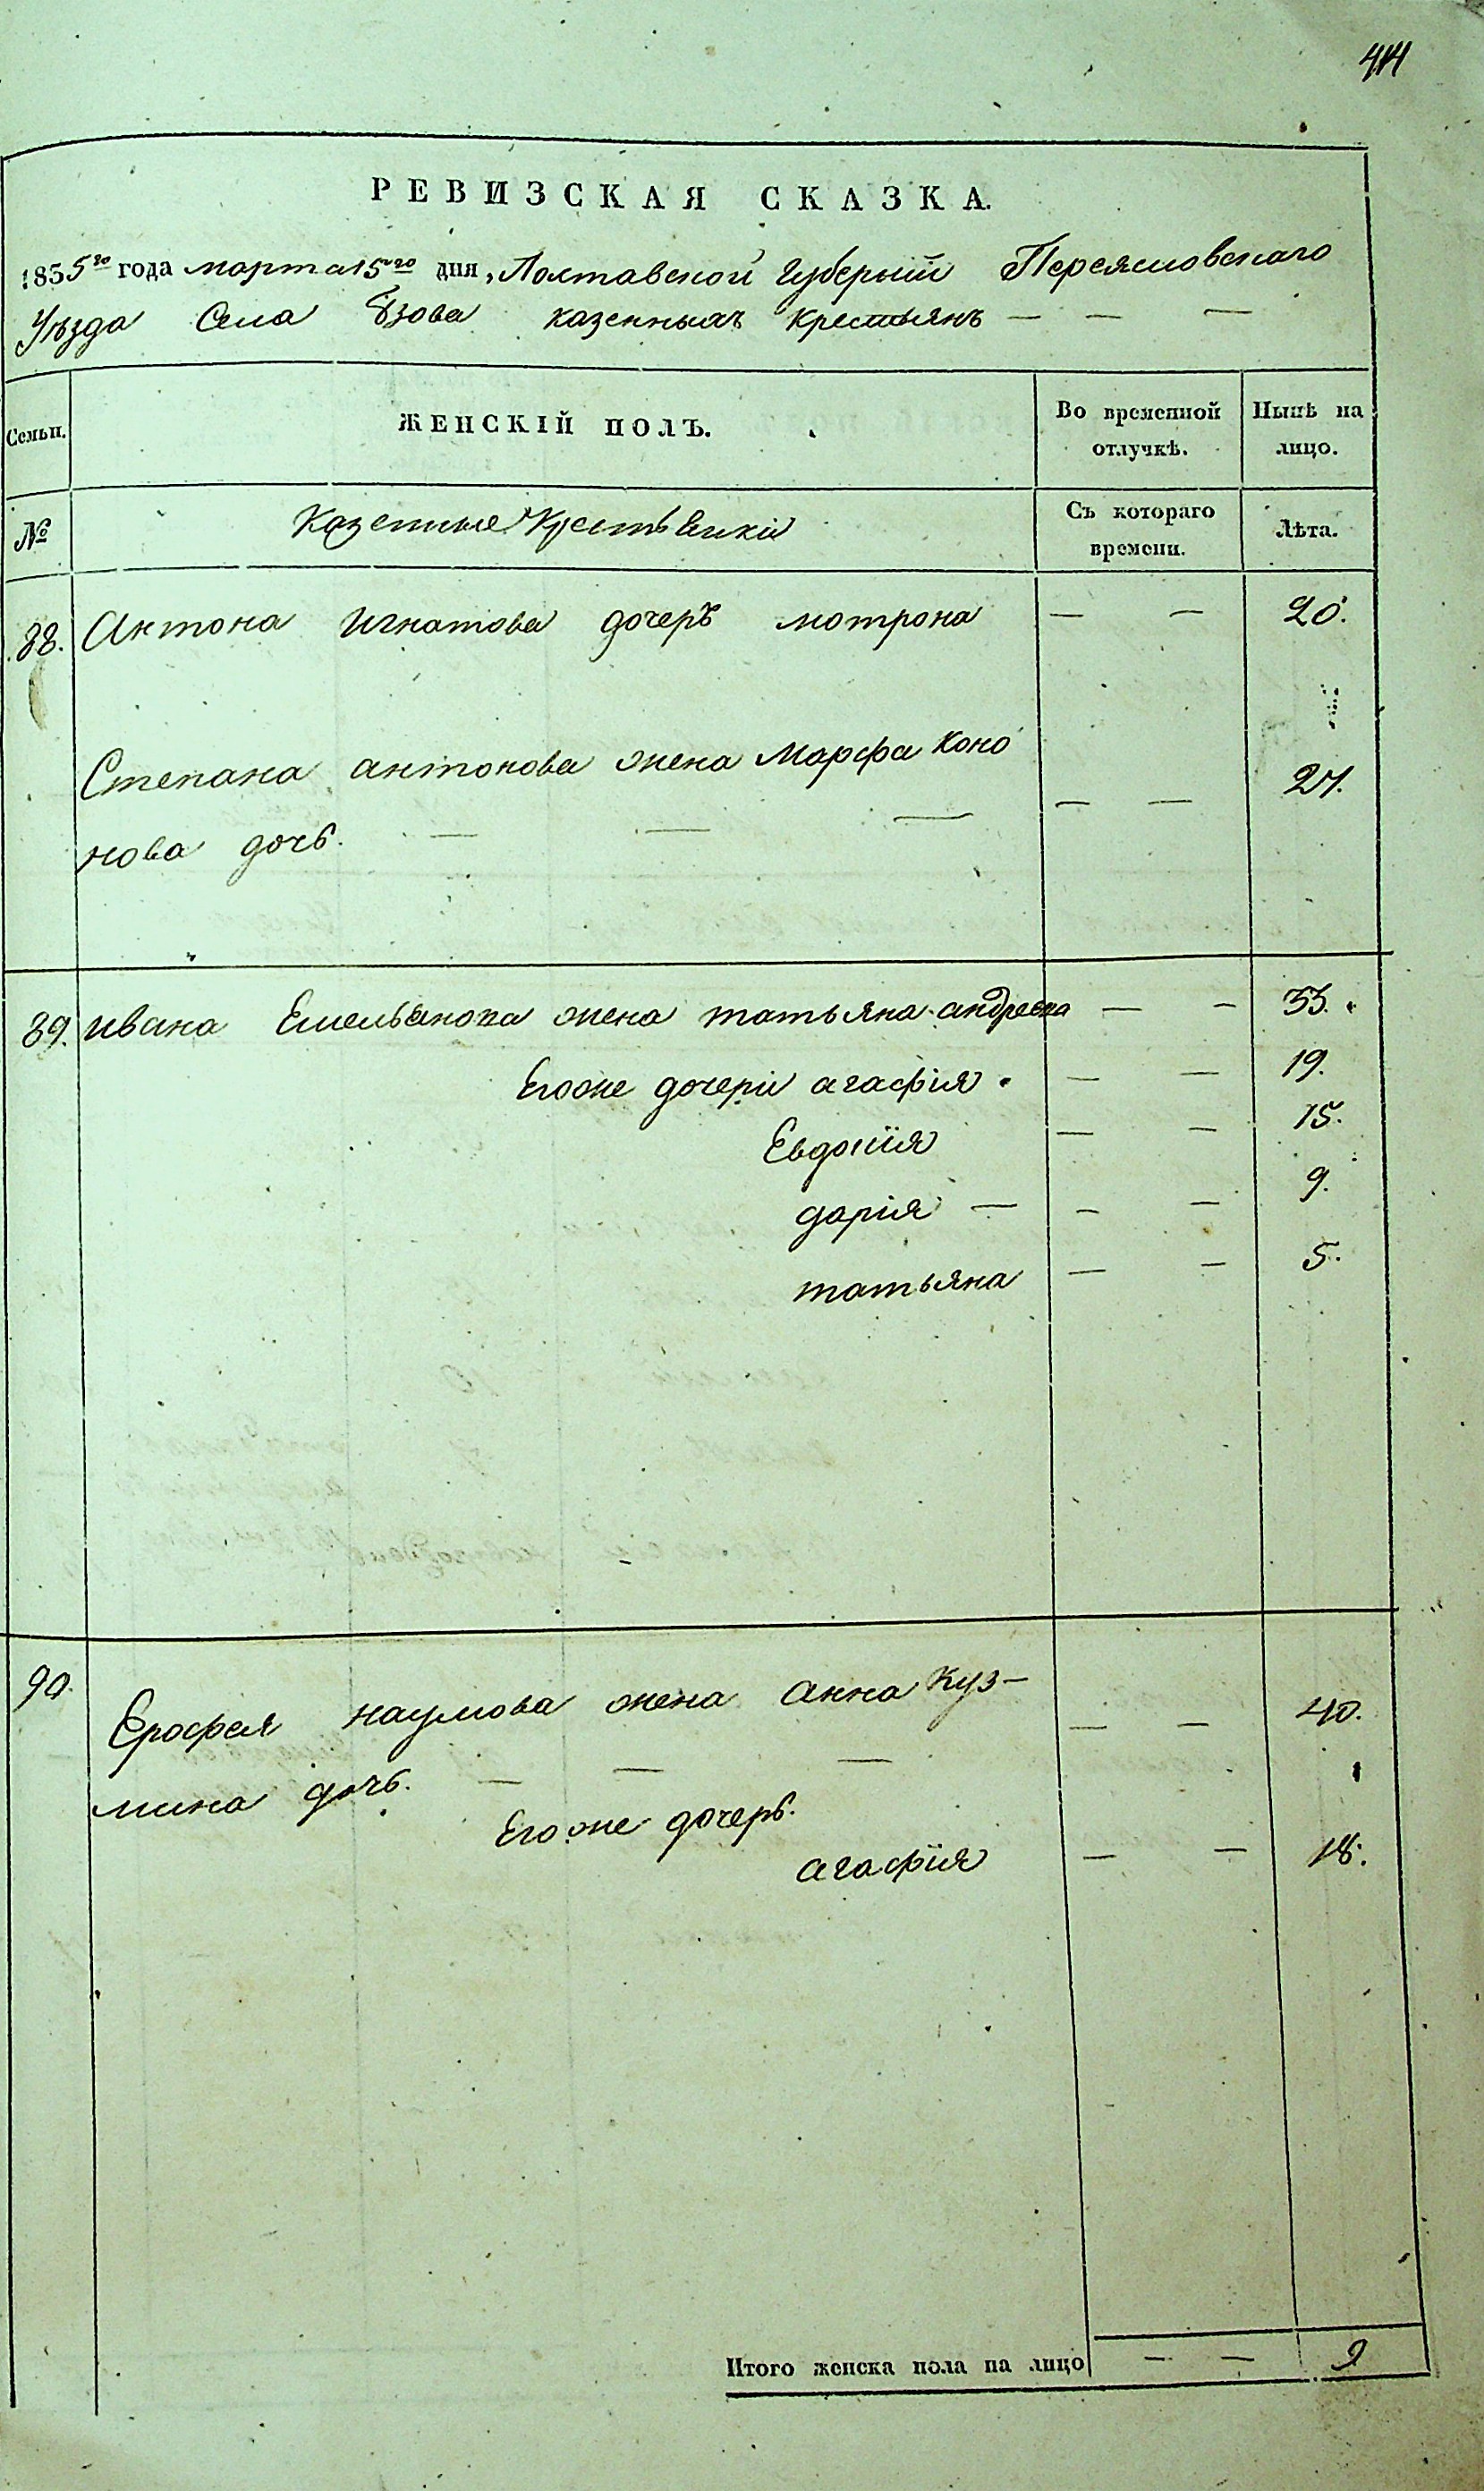 РЕВИЗСКАЯ СКАЗКА.
1835го года марта 15го дня, Полтавской Губерніи Переясловскаго
Уѣзда Села казенныхъ Крестьянъ — — —
Семьи. ЖЕНСКІЙ ПОЛЪ. Во временной отлучкѣ. Нынѣ на лицо.
№ Казенные Съ котораго времени. Лѣта.
88. Антона Игнатова дочерь мотрона — — 20.
Степана антонова жена Марфа Коно
нова дочь. — — — — — 27.
89. ивана Емельянова жена татьяна андреева — — 33.
Егоже дочери агафія. — — 19.
Евдокія — — 15.
дарія — — — 9.
татьяна — — 5.
90. Ерофея наумова жена анна Куз-
мина дочь. — — — — — 40.
Егоже дочерь.
агафія — — 18.
Итого женска пола на лицо — — 9